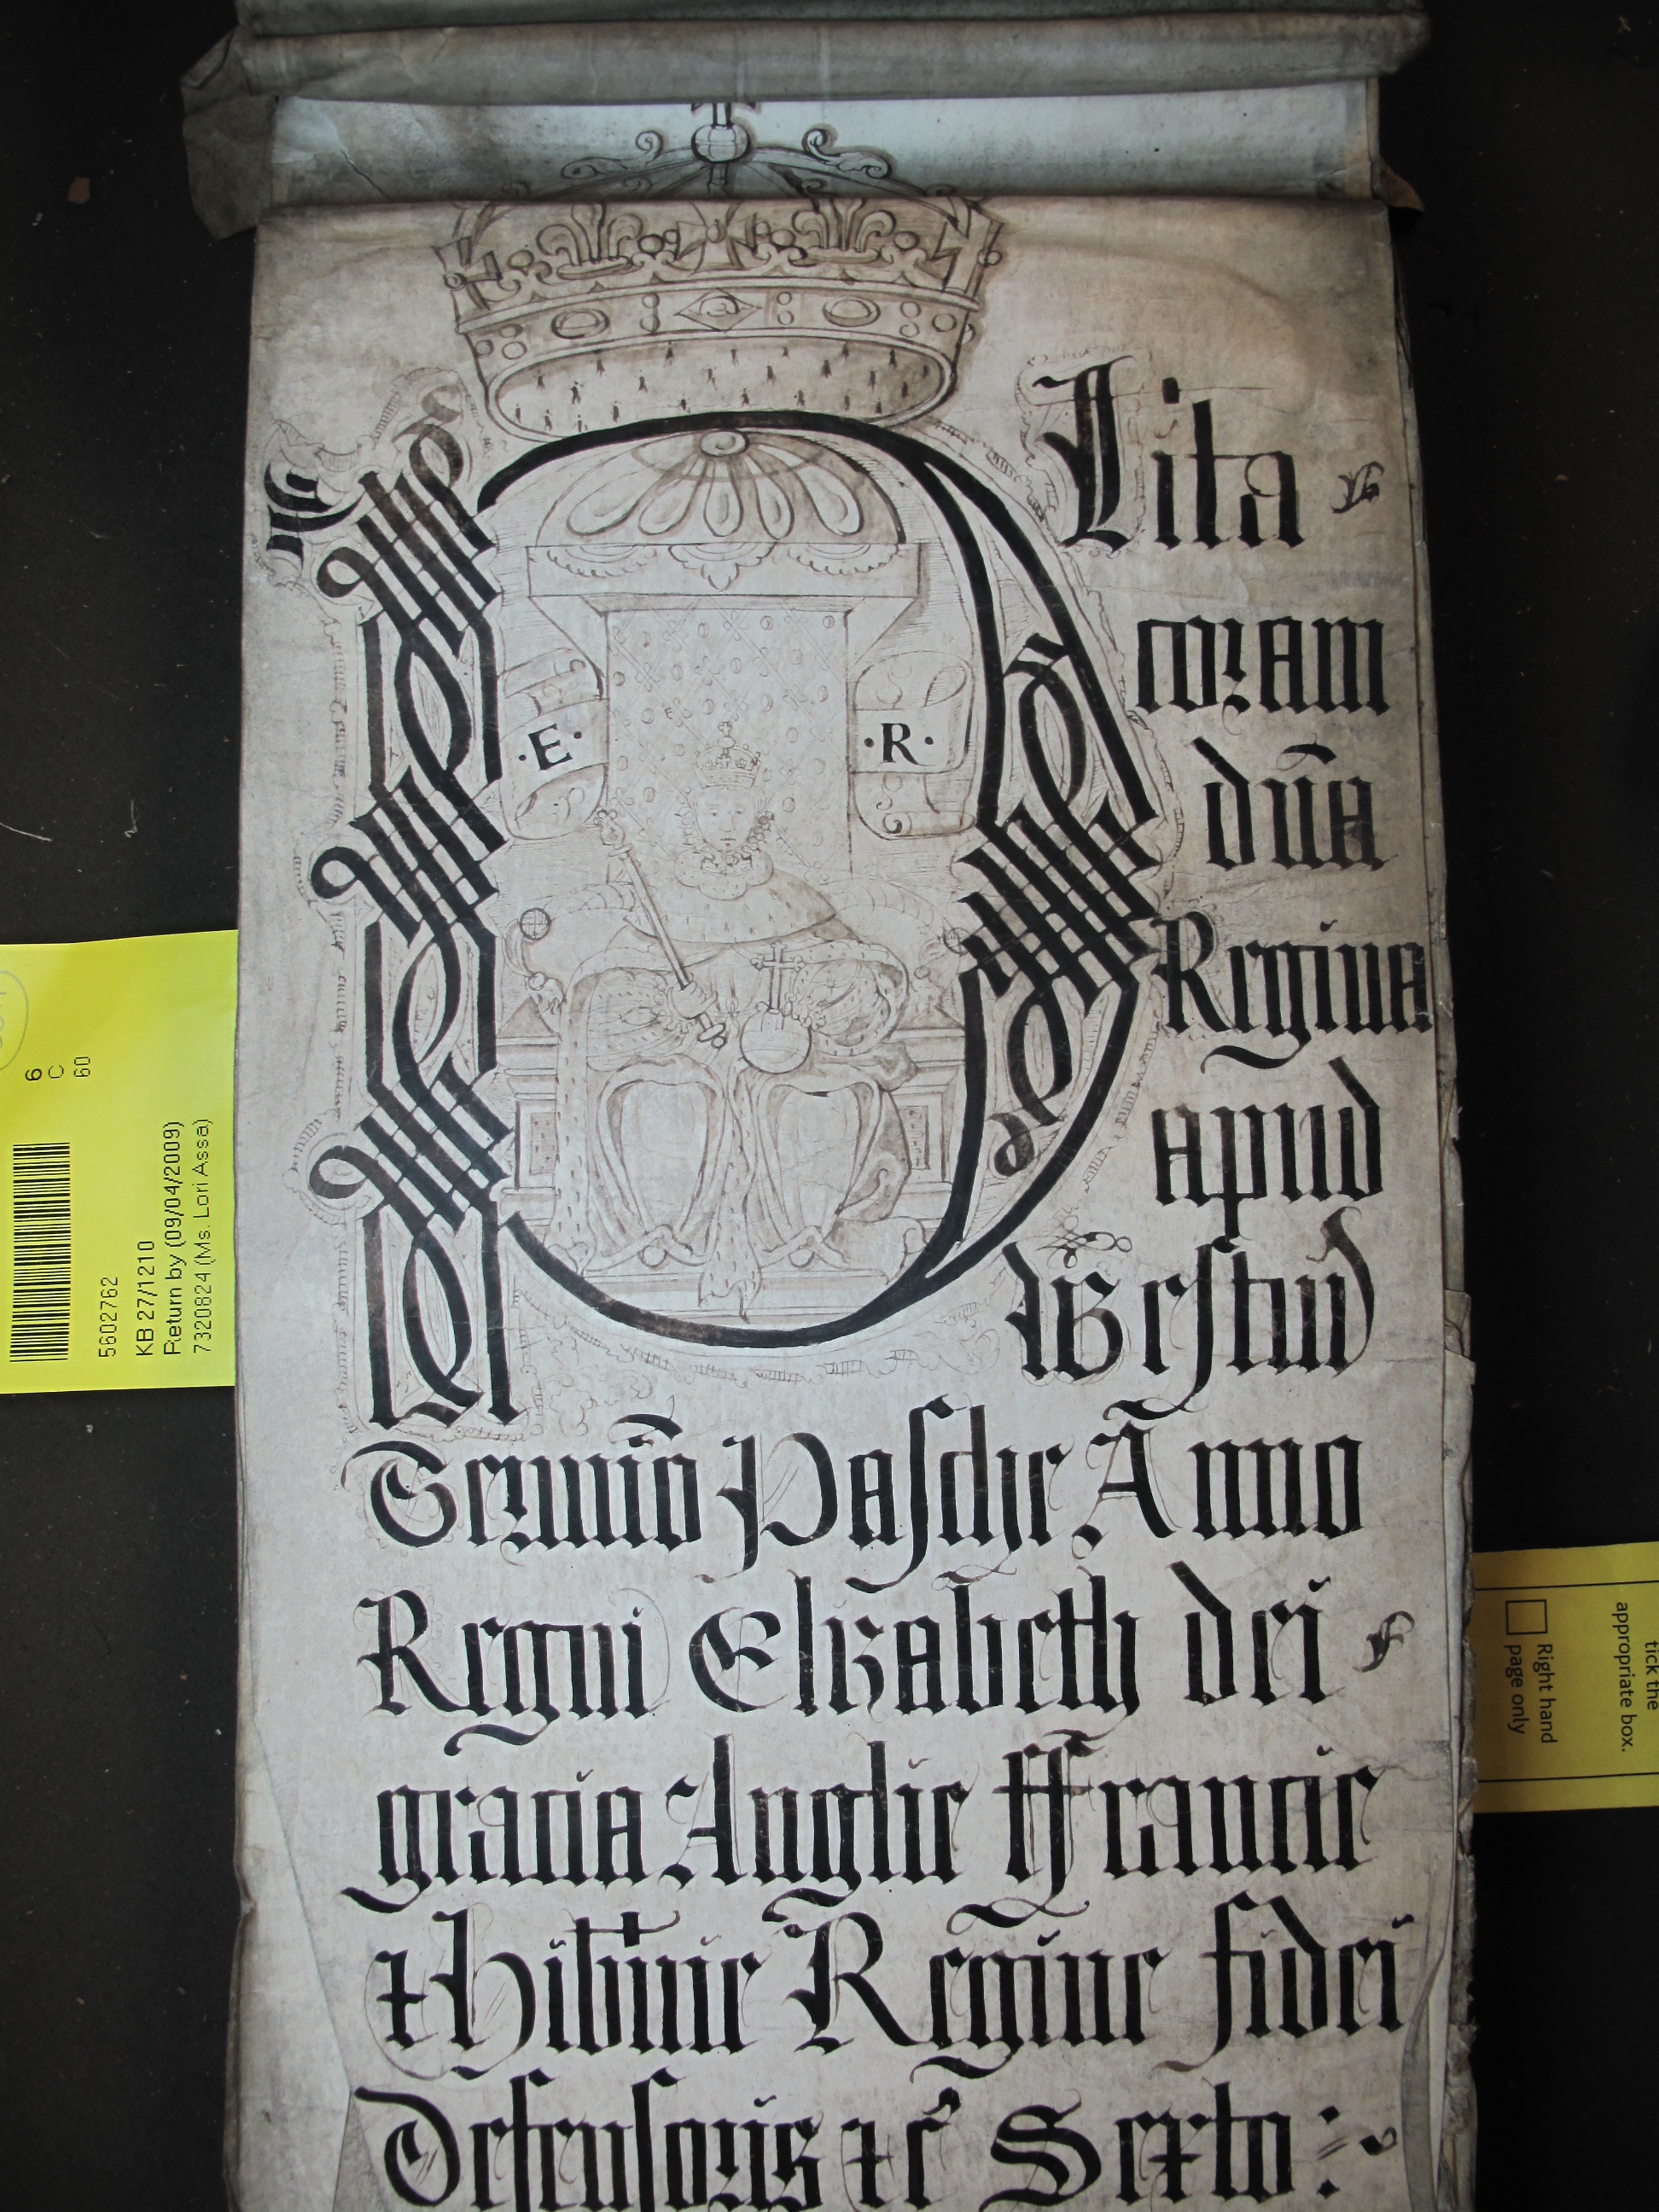 Plita
coram
dn̄a
Regina
apud
Westm̄
Termīo Pasche Anno
Regni Elizabeth dei
gracia Anglie ffrancie
⁊ Hib̄nie Regine fidei
Defensoris ⁊c̄ Sexto :
·E·
·R·
6
C
60
5602762
KB 27/1210
Return by (09/04/2009)
7320824 (Ms. Lori Assa)
tick the
appropriate box.
Right hand
page only